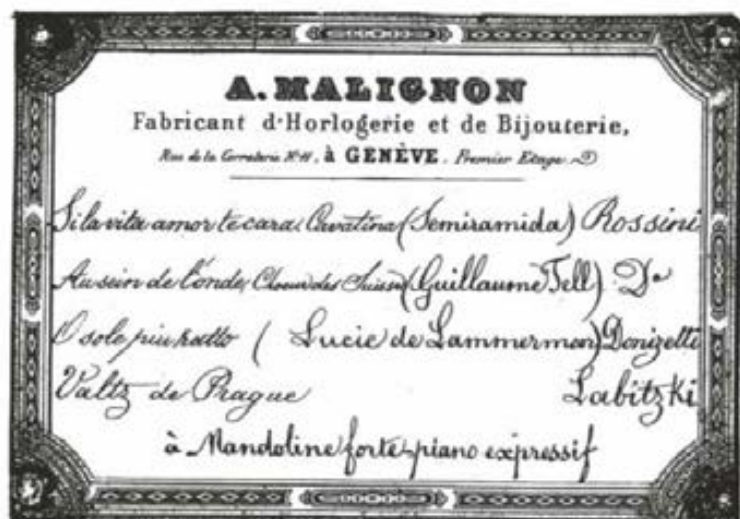 A. MALIGNON
Fabricant d'Horlogerie et de Bijouterie,
Rue de la Corraterie Nº 11, à GENÈVE. Premier Etage.
Si la vita amor te cara Cavatina (Semiramida) Rossini
Au sein de l'onde, Choeur des Suisses (Guillaume Tell) Dº
O sole piu (Lucie de Lammermoor) Donizetti
Valtz de Prague Labitzki
à Mandoline forte-piano expressif